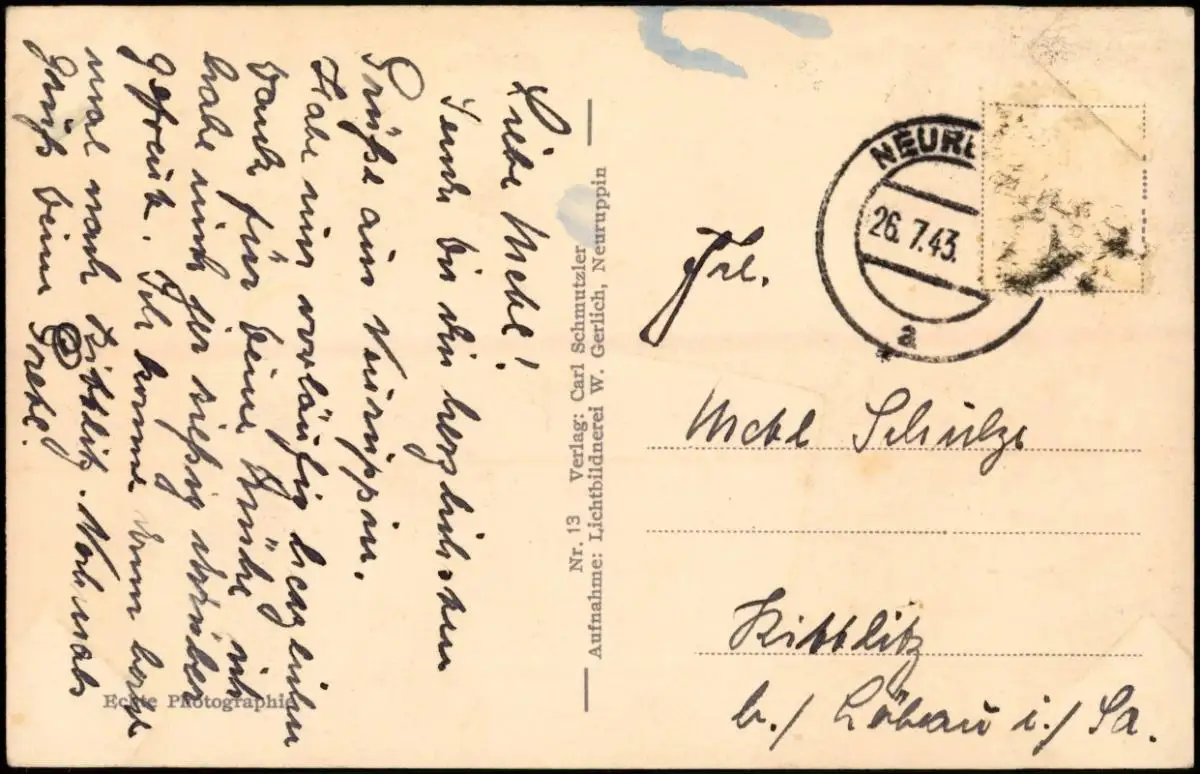 Liebe Mehl!
Sende Dir die herzlichsten
Grüße aus Neuruppin.
Habe nur vorläufig herzlichen
Dank für Deine Mühe ich
habe mich sehr riesig darüber
gefreut. Ich komme dann bald
mal nach Kittlitz. Nochmals
Gruß Deine Gretel.
Nr. 13 Verlag: Carl Schmutzler
Aufnahme: Lichtbildnerei W. Gerlich, Neuruppin
Echte Photographie
NEURU
26.7.43.
a
Frl.
Schulze
Kittlitz
b./ Löbau i./ Sa.